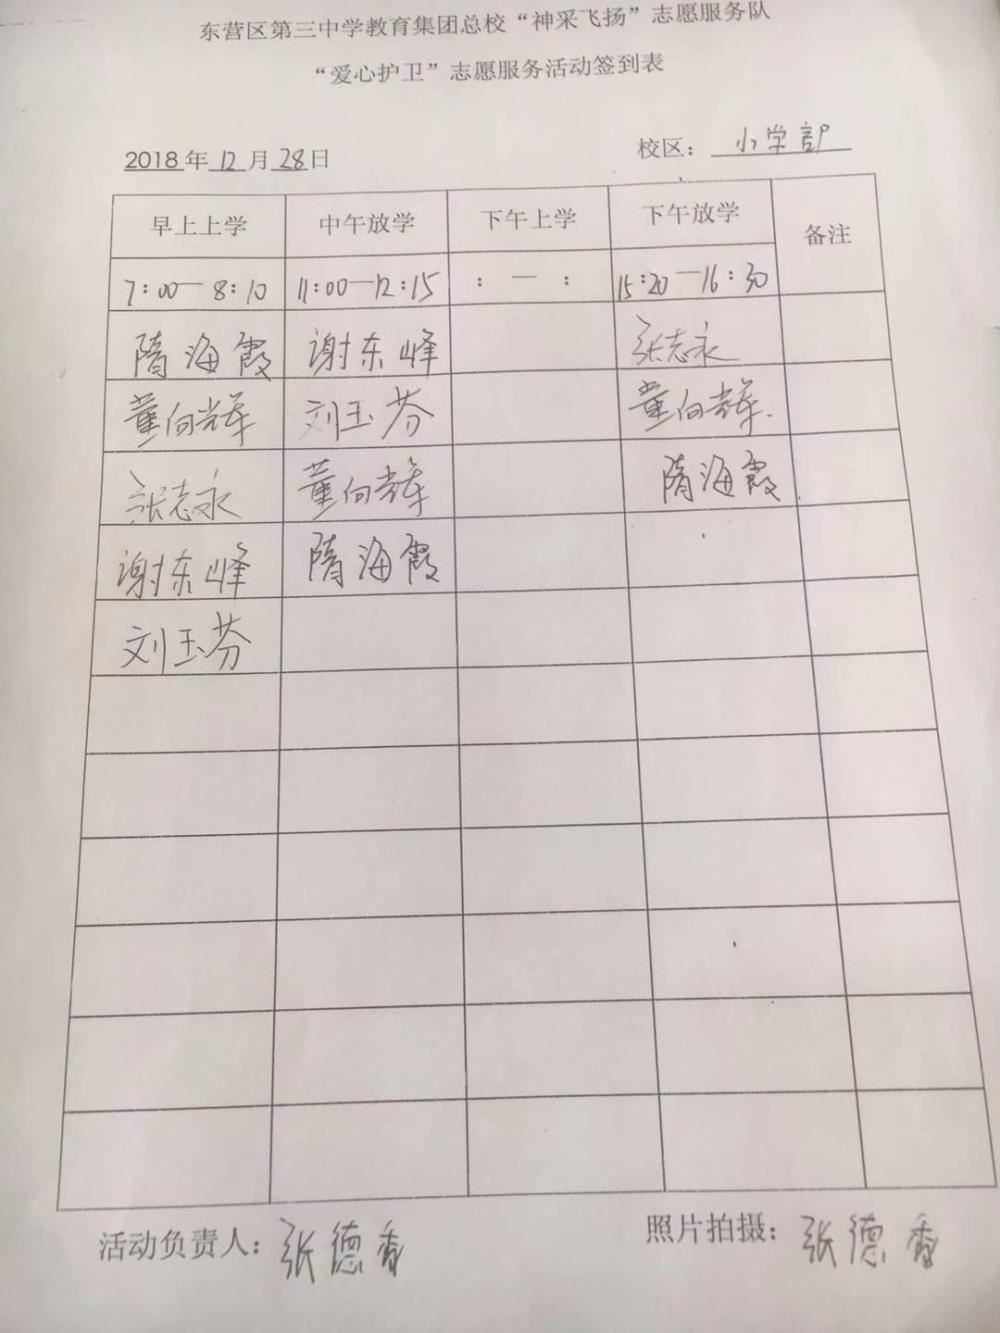 东营区第三中学教育集团总校“神采飞扬”志愿服务队
“爱心护卫”志愿服务活动签到表
2018年12月28日 校区：小学部
早上上学 中午放学 下午上学 下午放学 备注
7:00—8:10 11:00—12:15 : — : 15:20—16:30
隋海霞 谢东峰 张志永
董向辉 刘玉芬 董向辉
张志永 董向辉 隋海霞
谢东峰 隋海霞
刘玉芬
活动负责人：张德香 照片拍摄：张德香